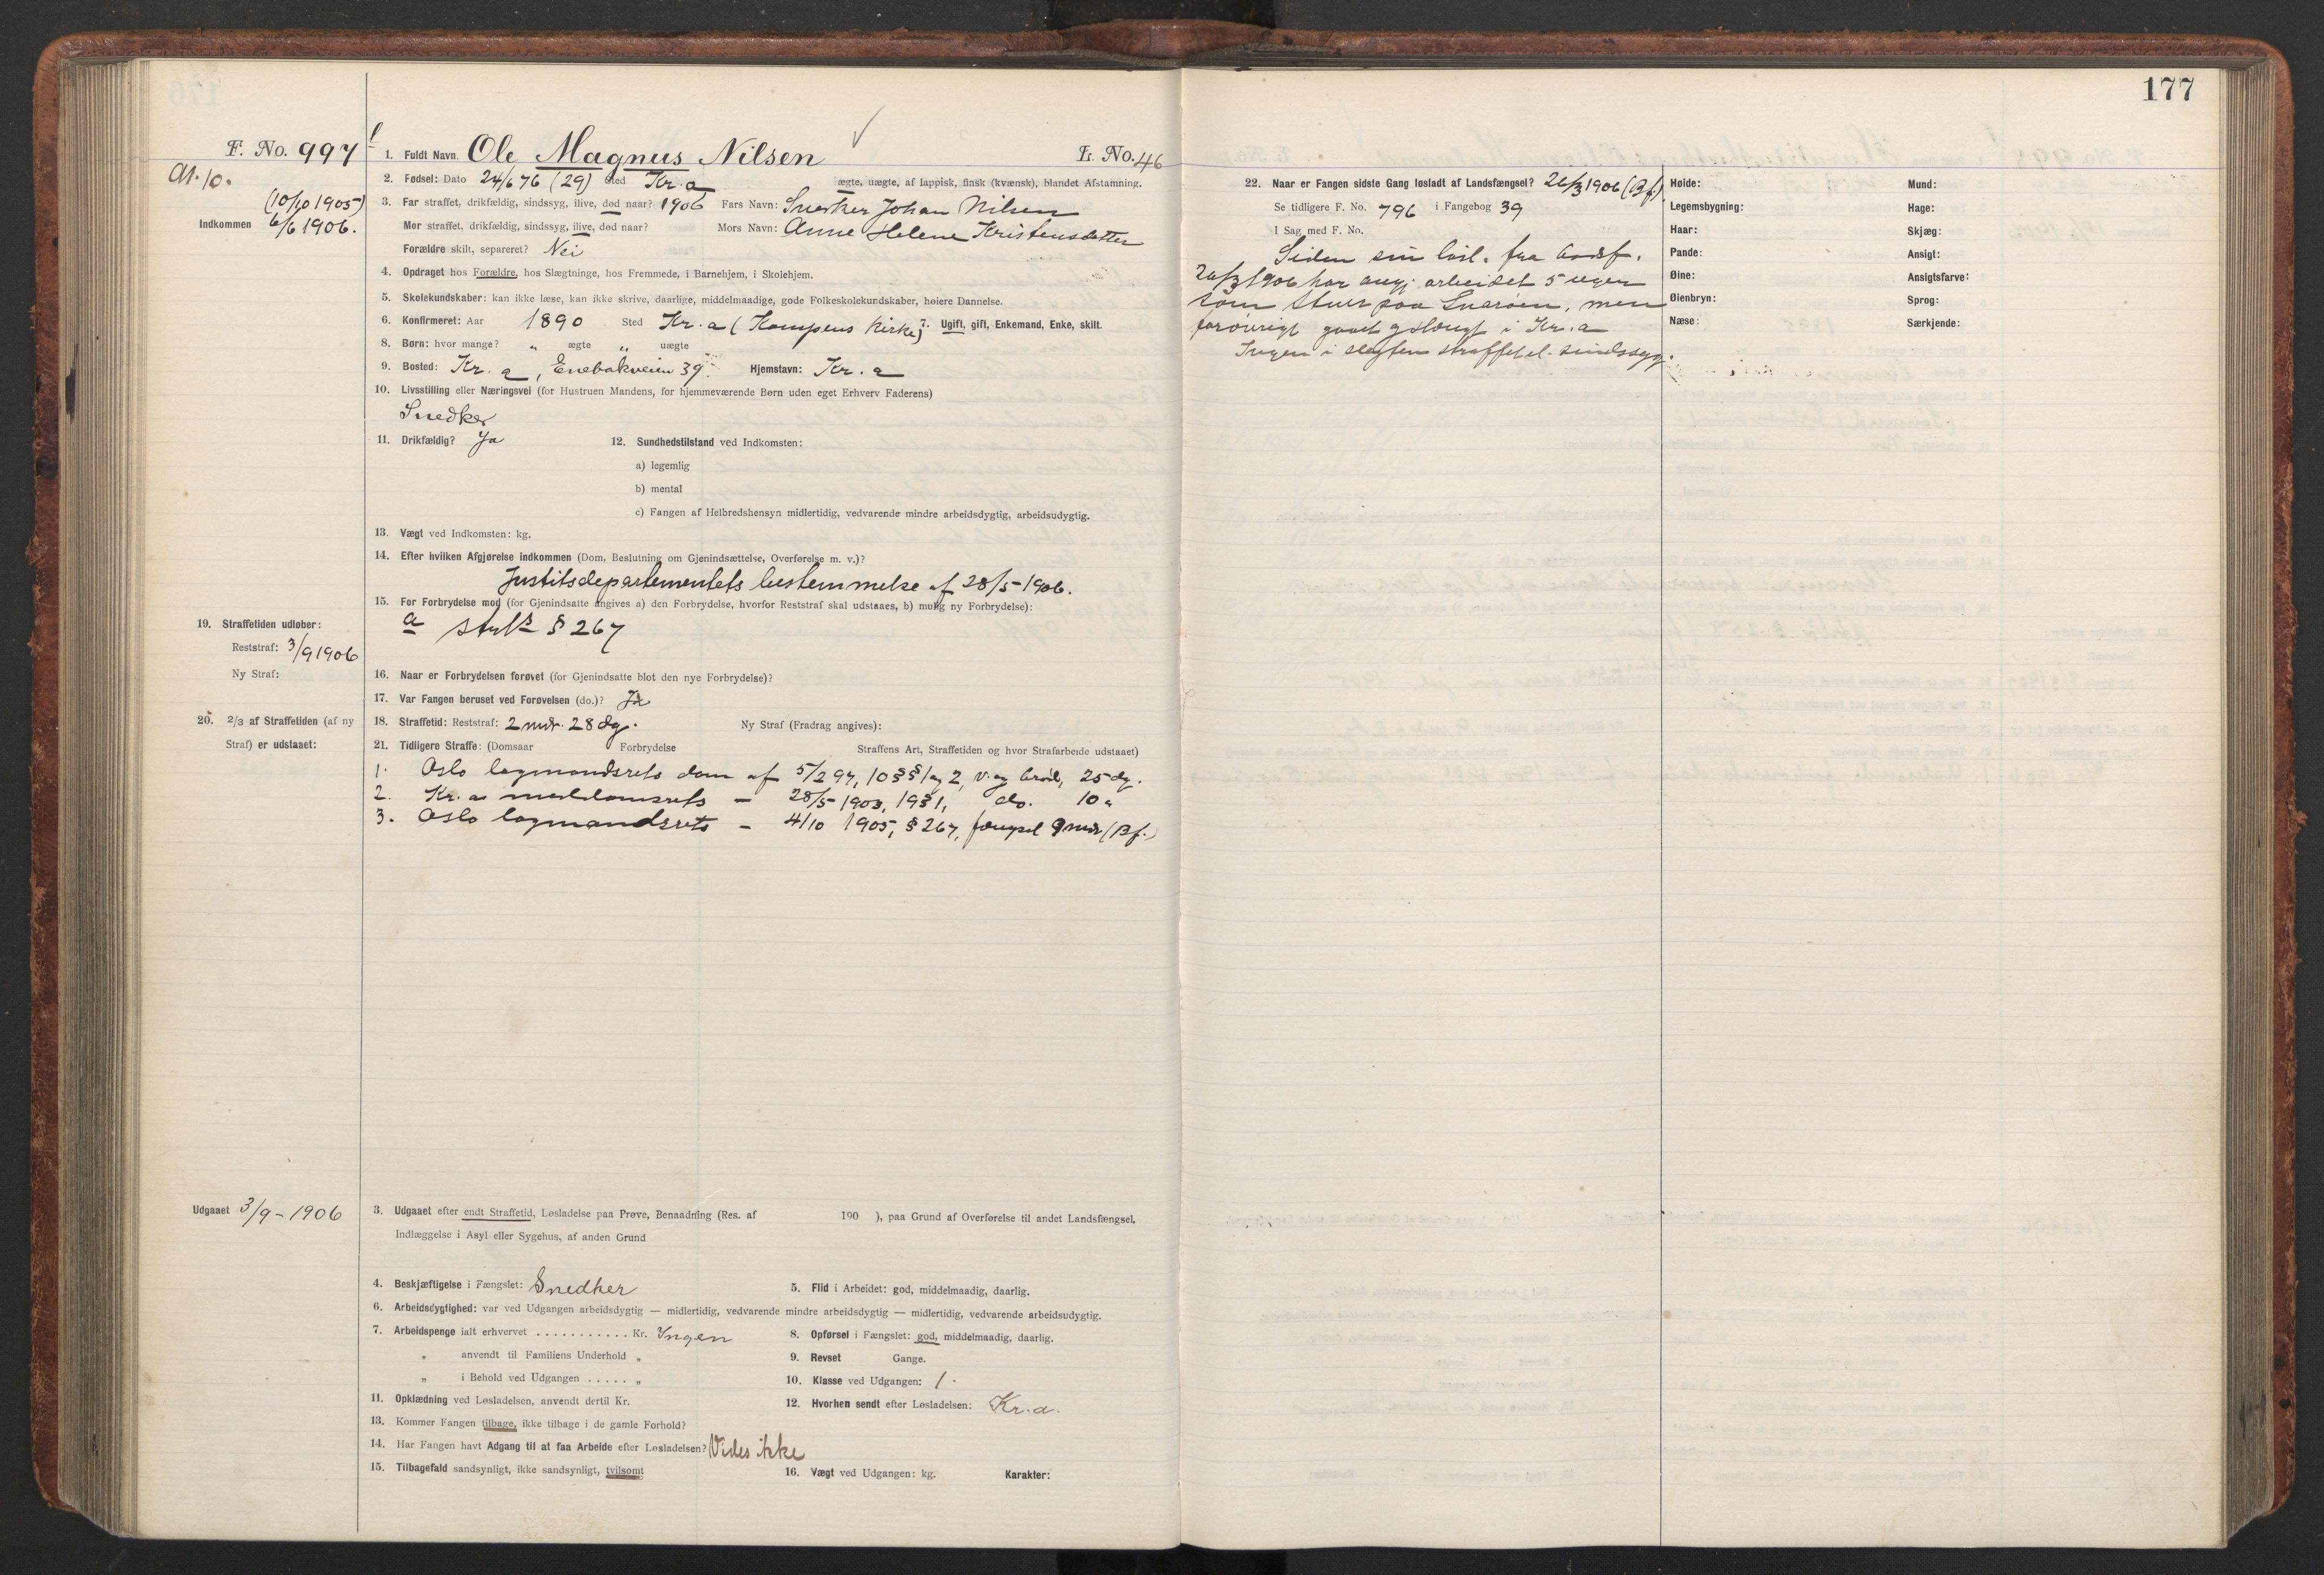 177
F. No. 997
1. Fuldt Navn. Ole Magnus Nilsen
L. No. 46
At. 10.
2. Fødsel: Dato 24/6 76 (29) Sted Kr.a ægte, uægte, af lappisk, finsk (kvænsk), blandet Afstamning.
(10/10 1905)
3. Far straffet, drikfældig, sindssyg, ilive, død naar? 1906 Fars Navn: Snedker Johan Nilsen
Indkommen 6/6 1906.
Mor straffet, drikfældig, sindssyg, ilive, død naar? Mors Navn: Anne Helene Kristensdatter
Forældre skilt, separeret? Nei
4. Opdraget hos Forældre, hos Slægtninge, hos Fremmede, i Barnehjem, i Skolehjem.
5. Skolekundskaber: kan ikke læse, kan ikke skrive, daarlige, middelmaadige, gode Folkeskolekundskaber, høiere Dannelse.
6. Konfirmeret: Aar 1890 Sted Kr.a (Kampens Kirke) 7. Ugift, gift, Enkemand, Enke, skilt.
8. Børn: hvor mange? " ægte " uægte
9. Bosted: Kr.a, Enebakveien 39. Hjemstavn: Kr.a
10. Livsstilling eller Næringsvei (for Hustruen Mandens, for hjemmeværende Børn uden eget Erhverv Faderens)
Snedker
11. Drikfældig? Ja 12. Sundhedstilstand ved Indkomsten:
a) legemlig
b) mental
c) Fangen af Helbredshensyn midlertidig, vedvarende mindre arbeidsdygtig, arbeidsudygtig.
13. Vægt ved Indkomsten: kg.
14. Efter hvilken Afgjørelse indkommen (Dom, Beslutning om Gjenindsættelse, Overførelse m. v.)?
Justitsdepartementets bestemmelse af 28/5-1906.
15. For Forbrydelse mod (for Gjenindsatte angives a) den Forbrydelse, hvorfor Reststraf skal udstaaes, b) mulig ny Forbrydelse):
a strls § 267
19. Straffetiden udløber:
Reststraf: 3/9 1906
Ny Straf:
16. Naar er Forbrydelsen forøvet (for Gjenindsatte blot den nye Forbrydelse)?
17. Var Fangen beruset ved Forøvelsen (do.)? Ja
20. 2/3 af Straffetiden (af ny Straf) er udstaaet:
18. Straffetid: Reststraf: 2 mdr. 28 dg. Ny Straf (Fradrag angives):
21. Tidligere Straffe: (Domsaar Forbrydelse Straffens Art, Straffetiden og hvor Strafarbeide udstaaet)
1. Oslo lagmandsrets dom af 5/2 97, 10 §§ 1 og 2, v. og brød, 25 dg.
2. Kr.a meddomsrets — 28/5-1903, 19 § 1, do. 10 "
3. Oslo lagmandsrets — 4/10 1905, § 267, fængsel 9 mdr (Bf.)
Udgaaet 3/9-1906
3. Udgaaet efter endt Straffetid, Løsladelse paa Prøve, Benaadning (Res. af 190 ), paa Grund af Overførelse til andet Landsfængsel,
Indlæggelse i Asyl eller Sygehus, af anden Grund
4. Beskjæftigelse i Fængslet: Snedker 5. Flid i Arbeidet: god, middelmaadig, daarlig.
6. Arbeidsdygtighed: var ved Udgangen arbeidsdygtig — midlertidig, vedvarende mindre arbeidsdygtig — midlertidig, vedvarende arbeidsudygtig.
7. Arbeidspenge ialt erhvervet . . . . . . . . . . . Kr. Yngen 8. Opførsel i Fængslet: god, middelmaadig, daarlig.
" anvendt til Familiens Underhold " 9. Revset Gange.
" i Behold ved Udgangen . . . . . " 10. Klasse ved Udgangen: 1.
11. Opklædning ved Løsladelsen, anvendt dertil Kr. 12. Hvorhen sendt efter Løsladelsen: Kr.a.
13. Kommer Fangen tilbage, ikke tilbage i de gamle Forhold?
14. Har Fangen havt Adgang til at faa Arbeide efter Løsladelsen? Vides ikke
15. Tilbagefald sandsynligt, ikke sandsynligt, tvilsomt 16. Vægt ved Udgangen: kg. Karakter:
22. Naar er Fangen sidste Gang løsladt af Landsfængsel? 26/3 1906 (Bf.)
Se tidligere F. No. 796 i Fangebog 39
I Sag med F. No.
Siden sin løsl. fra bodsf.
26/3 1906 har angj. arbeidet 5 uger
som stuer paa Snarøen, men
forøvrigt gaaet ledig i Kr.a
Ingen i slegten straffet el. sindssyg.
Høide: Mund:
Legemsbygning: Hage:
Haar: Skjæg:
Pande: Ansigt:
Øine: Ansigtsfarve:
Øienbryn: Sprog:
Næse: Særkjende: